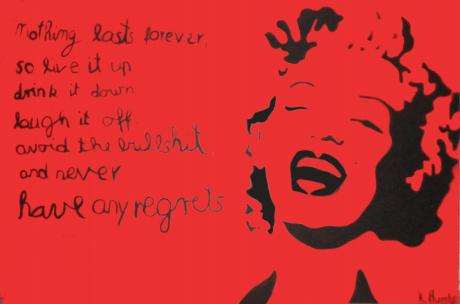 nothing lasts forever,
so live it up
drink it down
laugh it off
avoid the bullshit
and never
have any regrets